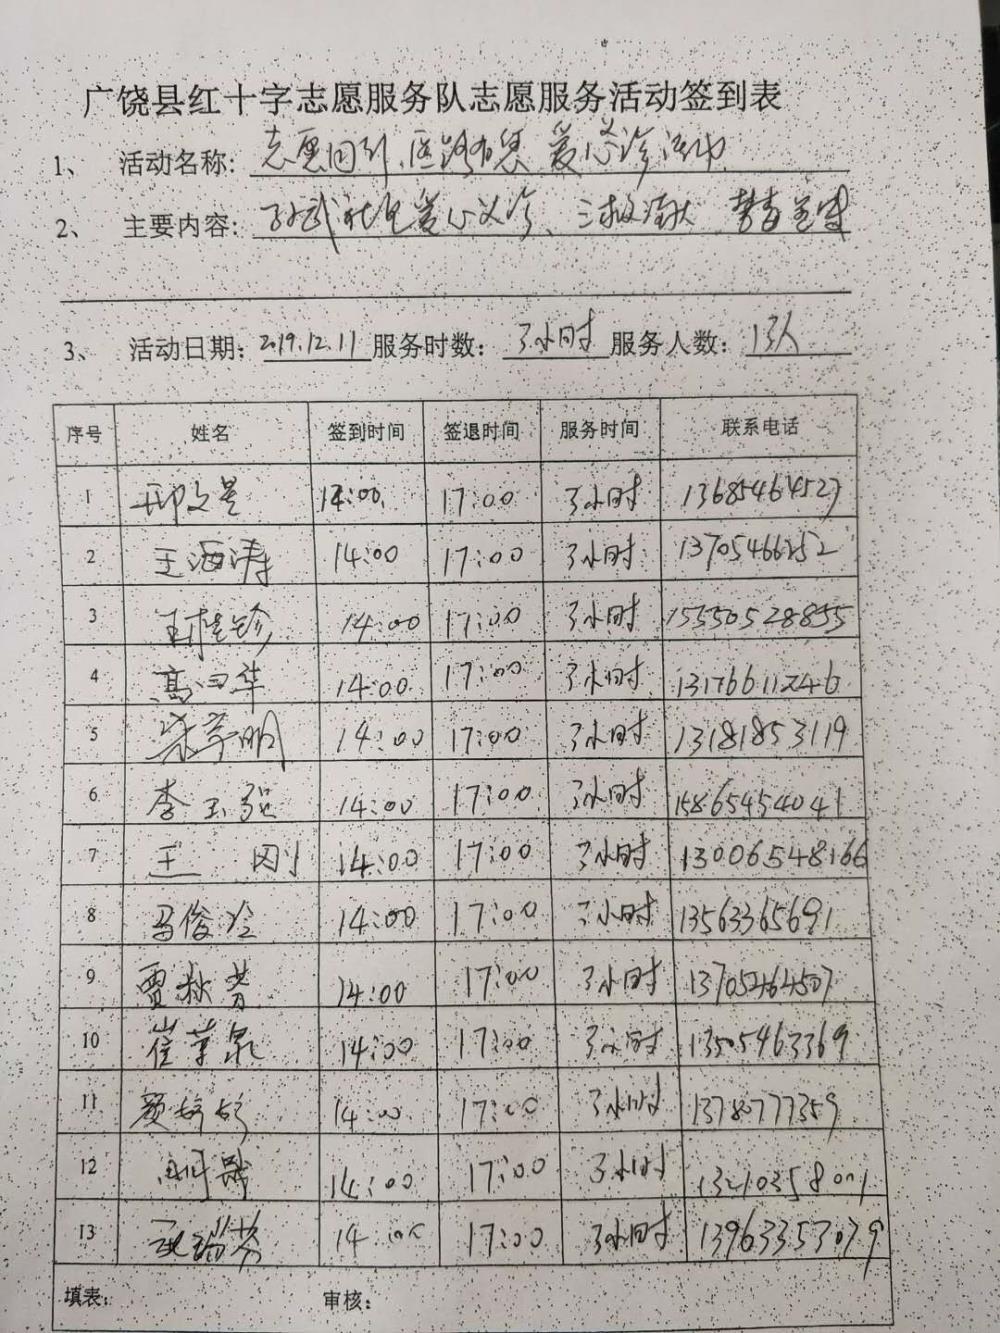 广饶县红十字志愿服务队志愿服务活动签到表
1、 活动名称: 志愿同行、医路有您 爱心义诊活动
2、 主要内容: 孙武社区爱心义诊、三救
3、 活动日期: 2019.12.11 服务时数: 3小时 服务人数: 13人
序号 姓名 签到时间 签退时间 服务时间 联系电话
1 邢文星 14:00 17:00 3小时 13685464527
2 王海涛 14:00 17:00 3小时 13705466252
3 王桂珍 14:00 17:00 3小时 15550528855
4 高 华 14:00 17:00 3小时 13176611246
5 明 14:00 17:00 3小时 13181853119
6 李玉强 14:00 17:00 3小时 15865454041
7 王 刚 14:00 17:00 3小时 13006548166
8 马俊冷 14:00 17:00 3小时 13563365691
9 贾秋芳 14:00 17:00 3小时 13705464507
10 崔 泉 14:00 17:00 3小时 13505463369
11 颜婷婷 14:00 17:00 3小时 13780777359
12 14:00 17:00 3小时
13 14:00 17:00 3小时 13963353079
填表: 审核: